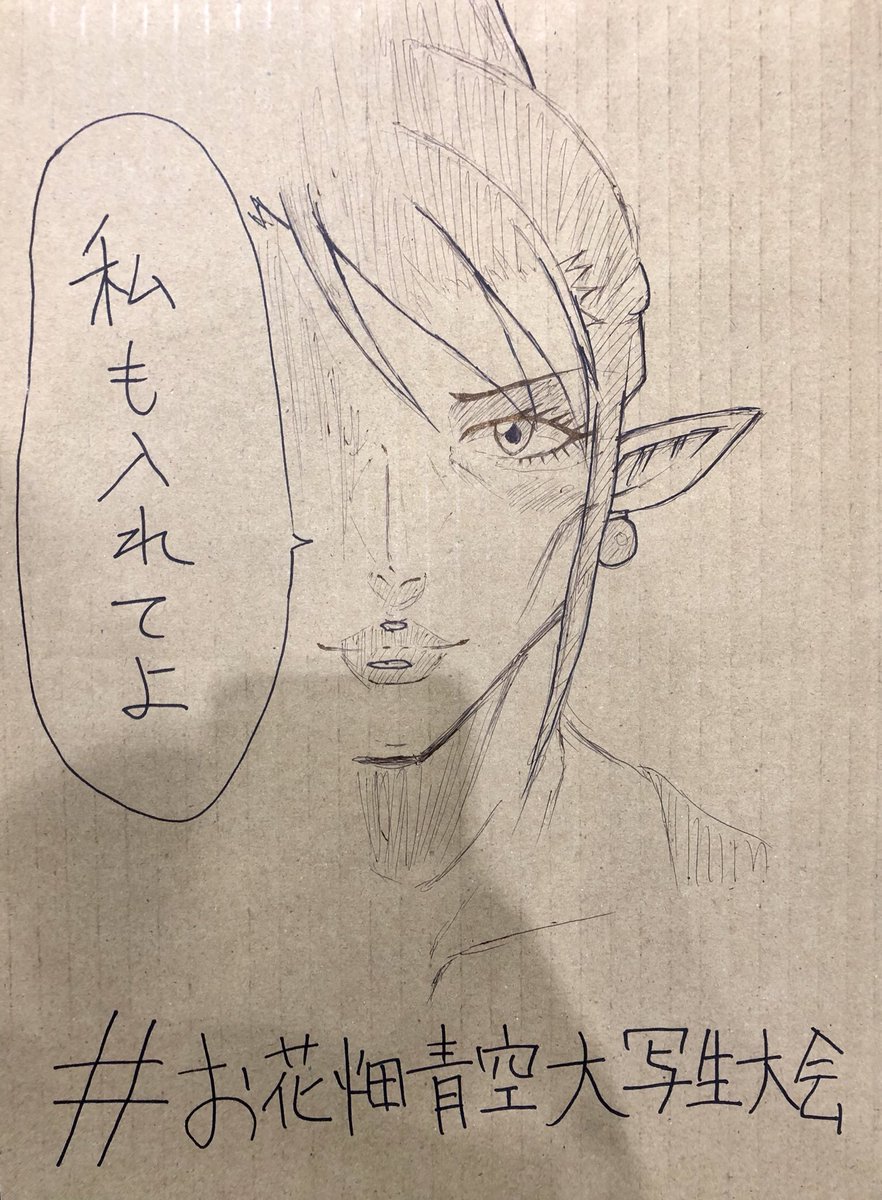 私も入れてよ
#お花畑青空大写生大会